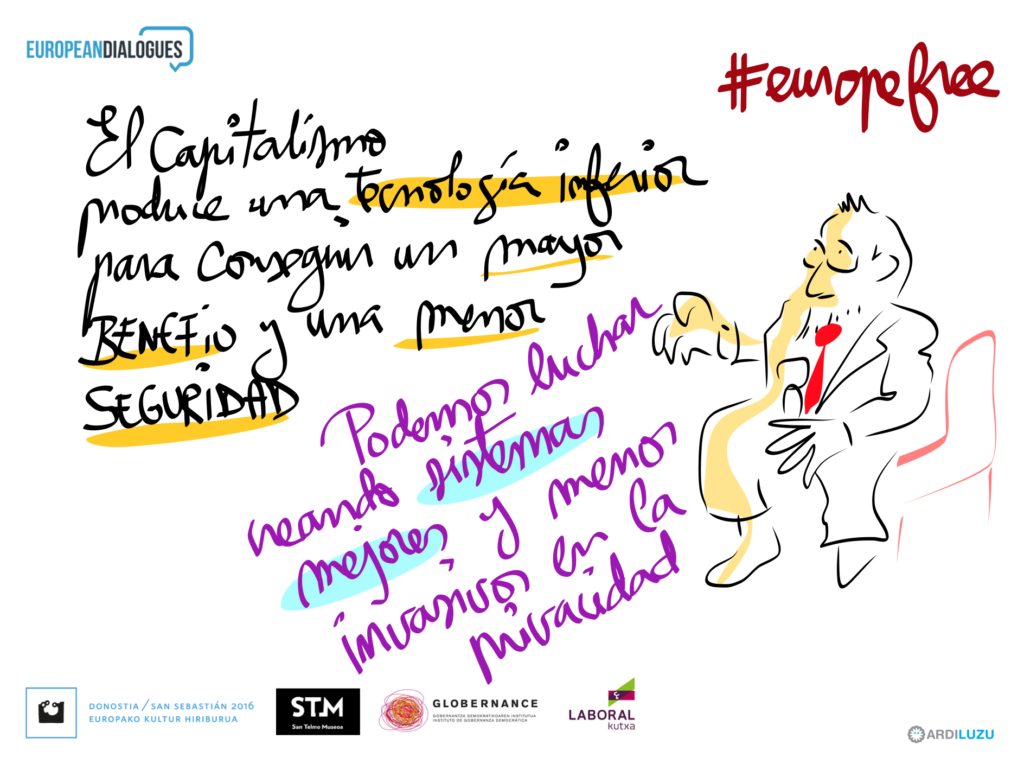 EUROPEANDIALOGUES
#europefree
El Capitalismo
produce una tecnología inferior
para conseguir un mayor
BENEFIO y una menor
SEGURIDAD
Podemos luchar
creando sistemas
mejores y menos
invasivos en la
privacidad
DONOSTIA / SAN SEBASTIÁN 2016
EUROPAKO KULTUR HIRIBURUA
STM
San Telmo Museoa
GLOBERNANCE
GOBERNANTZA DEMOKRATIKOAREN INSTITUTUA
INSTITUTO DE GOBERNANZA DEMOCRÁTICA
LABORAL
kutxa
ARDILUZU